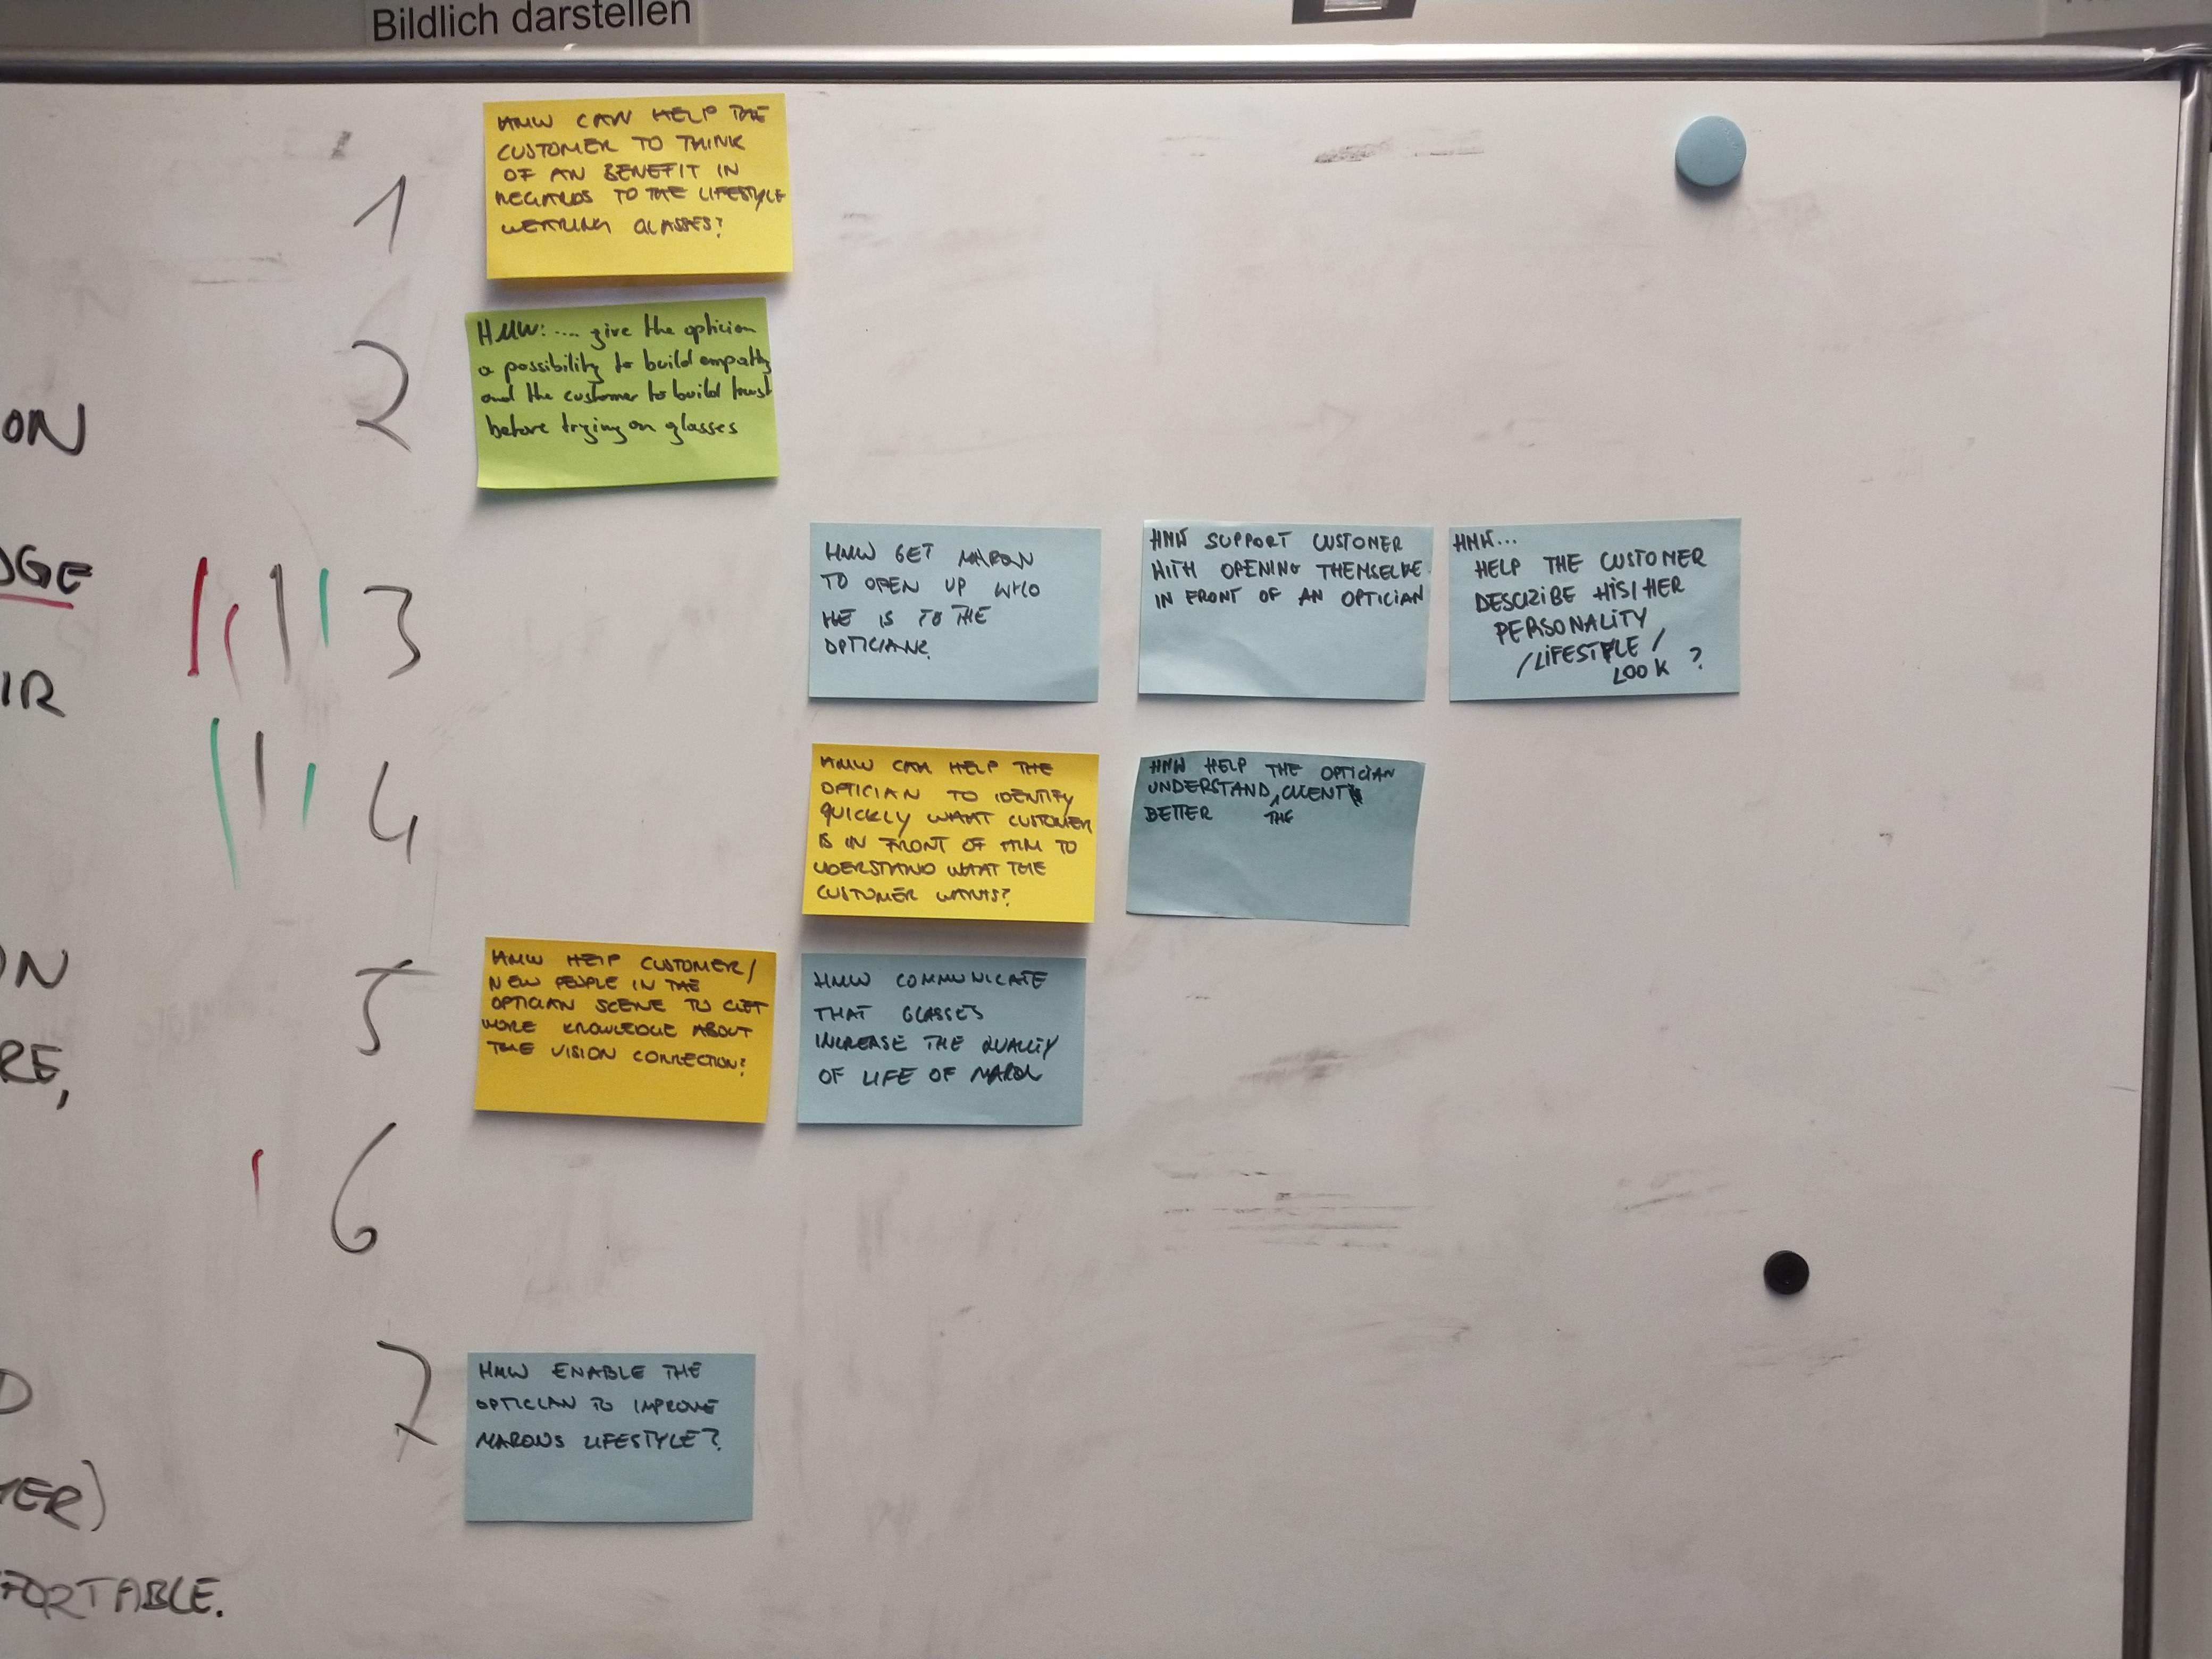 Bildlich darstellen
HMW CAN HELP THE
CUSTOMER TO THINK
OF AN BENEFIT IN
REGARDS TO THE LIFESTYLE
WEARING GLASSES?
1
HMW: .... give the optician
a possibility to build empathy
and the customer to build trust
before trying on glasses
2
ON
OGE
3
HMW GET MARON
TO OPEN UP WHO
HE IS TO THE
OPTICIAN?
HMW SUPPORT CUSTOMER
WITH OPENING THEMSELVE
IN FRONT OF AN OPTICIAN
HMW...
HELP THE CUSTOMER
DESCRIBE HIS/HER
PERSONALITY
/LIFESTYLE/
LOOK ?
IR
4
HMW CAN HELP THE
OPTICIAN TO IDENTIFY
QUICKLY WHAT CUSTOMER
IS IN FRONT OF HIM TO
UDERSTAND WHAT THE
CUSTOMER WANTS?
HMW HELP THE OPTICIAN
UNDERSTAND THE CLIENT
BETTER
ON
RE,
5
HMW HELP CUSTOMER/
NEW PEOPLE IN THE
OPTICIAN SCENE TO GET
MORE KNOWLEDGE ABOUT
THE VISION CORRECTION?
HMW COMMUNICATE
THAT GLASSES
INCREASE THE QUALITY
OF LIFE OF MARON
6
7
HMW ENABLE THE
OPTICIAN TO IMPROVE
MARONS LIFESTYLE?
D
ER)
FORTABLE.